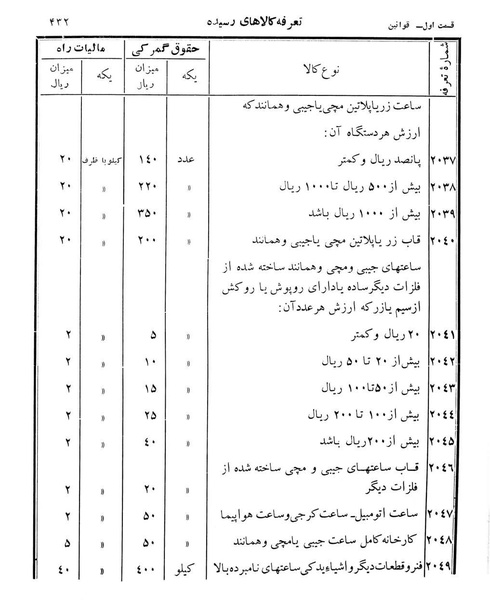 قسمت اول ـ قوانین تعرفه کالاهای رسیده ۴۳۲
شمارهٔ تعرفه نوع کالا حقوق گمرکی مالیات راه
یکه میزان ریال یکه میزان ریال
ساعت زریاپلاتین مچی یاجیبی و همانندکه
ارزش هردستگاه آن:
۲۰۳۷ پانصد ریال وکمتر عدد ۱۴۰ کیلو با ظرف ۲۰
۲۰۳۸ بیش از ۵۰۰ ریال تا ۱۰۰۰ ریال » ۲۲۰ » ۲۰
۲۰۳۹ بیش از ۱۰۰۰ ریال باشد » ۳۵۰ » ۲۰
۲۰۴۰ قاب زر یاپلاتین مچی یاجیبی وهمانند » ۲۰۰ » ۲۰
ساعتهای جیبی ومچی وهمانند ساخته شده از
فلزات دیگرساده یادارای روپوش یا روکش
ازسیم یازرکه ارزش هرعددآن:
۲۰۴۱ ۲۰ریال وکمتر » ۵ » ۲
۲۰۴۲ بیش از ۲۰ تا ۵۰ ریال » ۱۰ » ۲
۲۰۴۳ بیش از۵۰تا۱۰۰ ریال » ۱۵ » ۲
۲۰۴۴ بیش از۱۰۰ تا ۲۰۰ ریال » ۲۵ » ۲
۲۰۴۵ بیش از۲۰۰ریال باشد » ۴۰ » ۲
۲۰۴۶ قاب ساعتهای جیبی و مچی ساخته شده از
فلزات دیگر » ۲۰ » ۲
۲۰۴۷ ساعت اتومبیل ـ ساعت کرجی وساعت هواپیما » ۵۰ » ۲
۲۰۴۸ کارخانه کامل ساعت جیبی یامچی وهمانند » ۵۰ » ۵
۲۰۴۹ فنروقطعات دیگر واشیاءیدکی ساعتهای نامبرده بالا کیلو ۴۰۰ » ۴۰